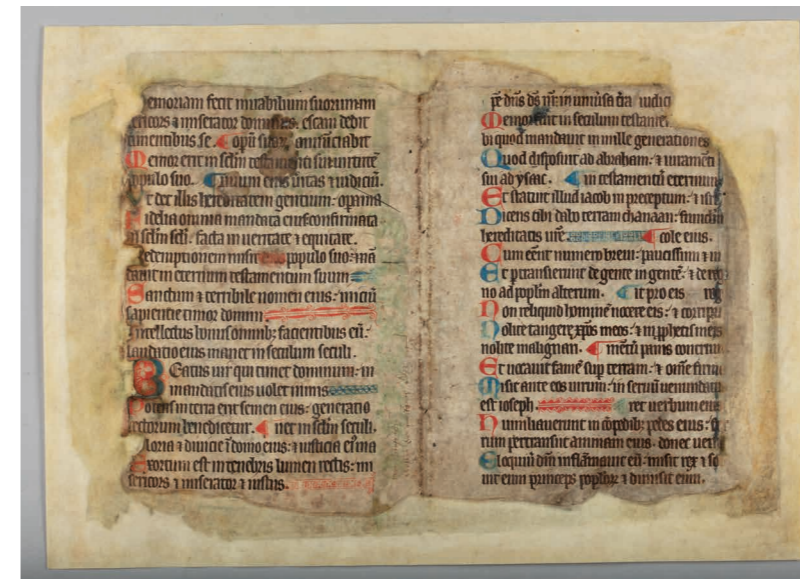 emoriam fecit mirabilium suorum: m
ericors ⁊ miserator dominus: escam dedit
timentibus se. opũ suoꝝ. annũciabit
Memor erit in sclm testamenti sui: uirtutẽ
populo suo.
Ut det illis hereditatem gentium: opa ma
Fidelia omnia mandata eius confirmata
in sclm scli: facta in ueritate ⁊ equitate.
Redemptionem misit populo suo: mã
dauit in eternum testamentum suum
Sanctum ⁊ terribile nomen eius: iniciũ
sapientie timor domini
Intellectus bonus omnibꝫ facientibus eũ:
laudatio eius manet in seculum seculi.
BEatus uir qui timet dominum: in
mandatis eius uolet nimis
Potens in terra erit semen eius: generatio
rectorum benedicetur.
Gloria ⁊ diuicie ĩ domo eius: ⁊ iusticia eꝰ ma
Exortum est in tenebris lumen rectis: mi
sericors ⁊ miserator ⁊ iustus.
dñs ds nr̃: in uniũsa tr̃a iudici
Memor fuit in seculum testamẽ
bi quod mandauit in mille generationes
Quod disposuit ad abraham: ⁊ iuramẽti
sui ad ysaac. in testamentũ eternum
Et statuit illud iacob in preceptum: ⁊ isr̃
Dicens tibi dabo terram chanaan: funiculũ
hereditatis ur̃e. cole eius.
Cum eẽnt numero breui: paucissimi ⁊ in
Et ptransierunt de gente in gentẽ: ⁊ de reg
no ad pop̃lm alterum. it pro eis reg
Non reliquid hominẽ nocere eis: ⁊ corripu
Nolite tangere xp̃os meos: ⁊ in ꝓphetis meis
nolite malignari. mẽtũ panis contriui
Et uocauit famẽ sup terram: ⁊ om̃e firm
Misit ante eos uirum: in seruũ uenundatꝰ
est ioseph. ret uerbum eiꝰ
Humiliauerunt in cõpedibꝫ pedes eius: fer
rum pertransiit animam eius. donec ueni
Eloquiũ dñi inflãmauit eũ: misit rex ⁊ so
uit eum princeps pop̃lorꝫ ⁊ dimisit eum.